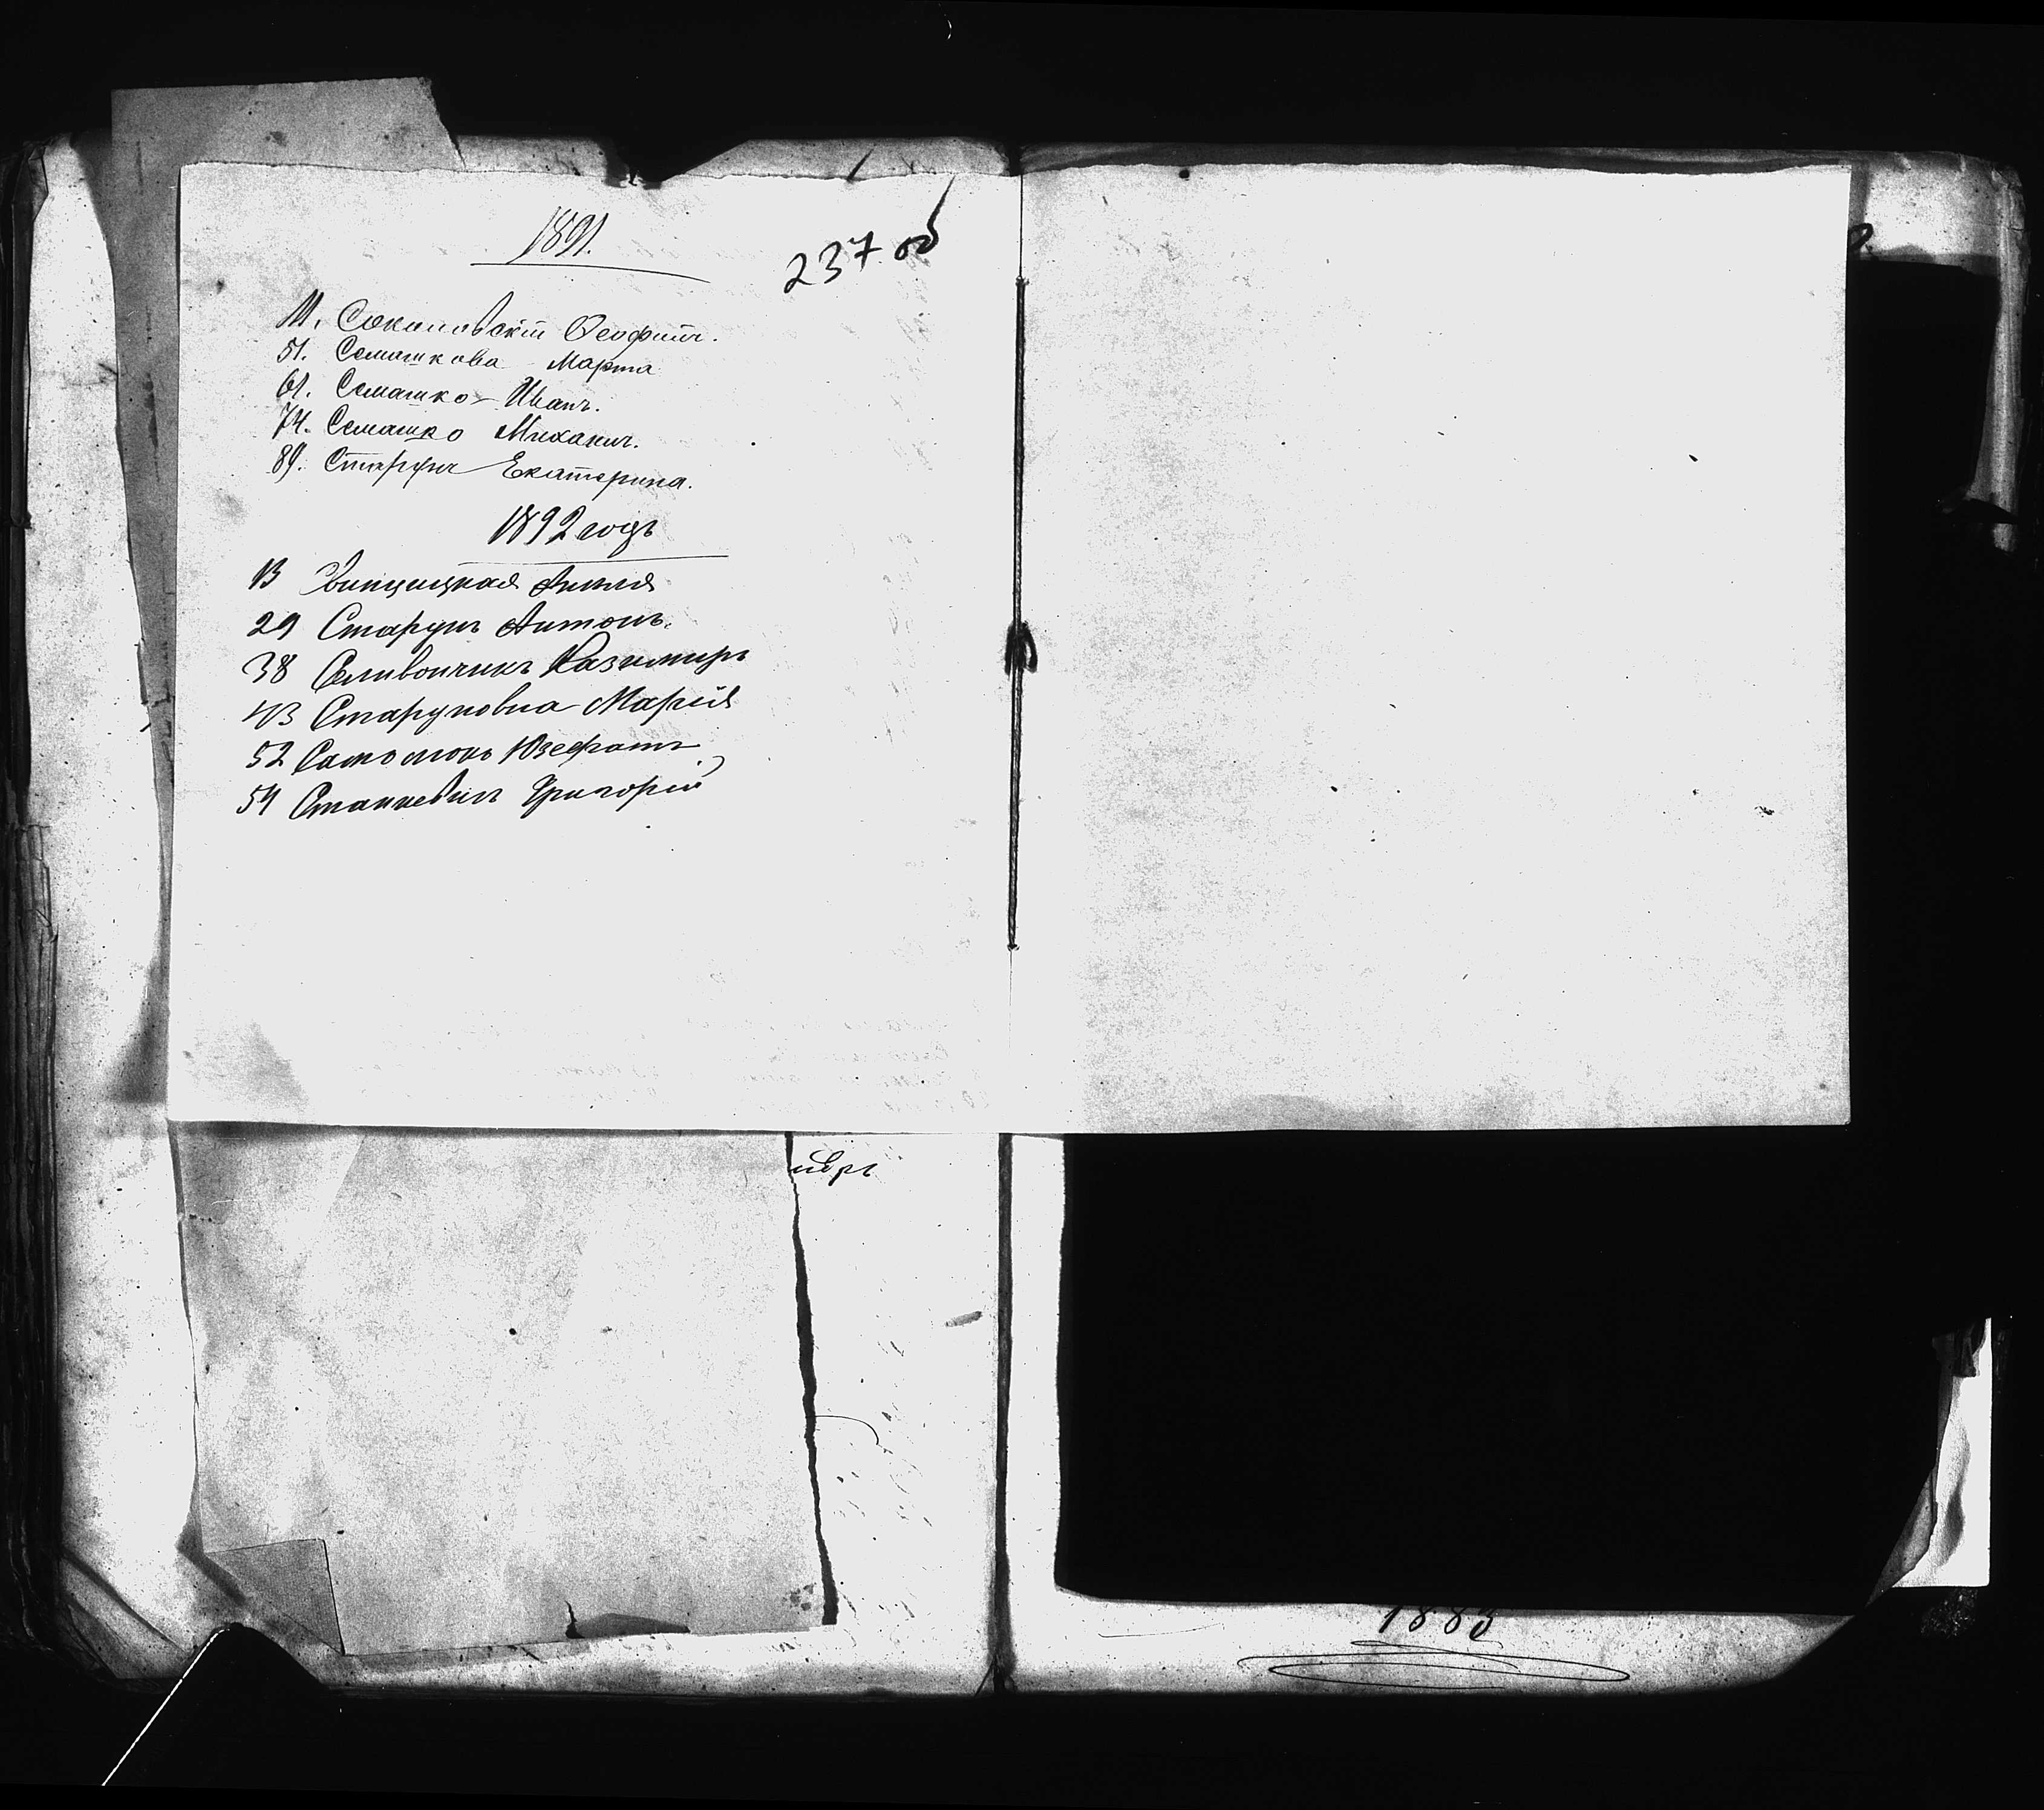 1891.
237 об
11. Соколовскій Ѳеофилъ.
51. Семашкова Марта
61. Семашко Иванъ.
74. Семашко Михаилъ.
89. Старунъ Екатерина.
1892 годъ
13 Свинцицкая Анеля
29 Старунъ Антонъ.
38 Селивончикъ Казимиръ
43 Староновна Марія
52 Самомонъ Юзефатъ
54 Станкевичъ Григорій
ябрь
1883